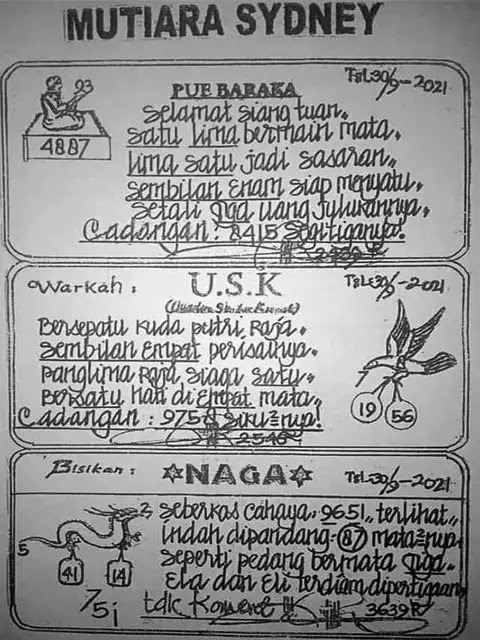 MUTIARA SYDNEY
Tgl 30/9-2021
93
PUE BARAKA
4887
Selamat siang tuan.
Satu lima bermain mata.
Lima satu jadi sasaran.
Sembilan Enam siap menyatu.
Setali tiga uang julukannya.
Cadangan : 8415 Segitiganya!
Warkah :
U.S.K
Tgl 30/9-2021
Bersepatu kuda putri Raja.
Sembilan Empat perisainya.
Panglima Raja siaga satu.
Bersatu hati di Empat mata.
19 56
Cadangan : 975
2546
Bisikan :
NAGA
Tgl 30/9-2021
Seberkas cahaya. 9651,, terlihat,,
indah dipandang- 87 mata
2
5
seperti pedang bermata tiga.
41 14
Ela dan Eli terdiam dipertigaan
75i
tdk Konsent
3639 R